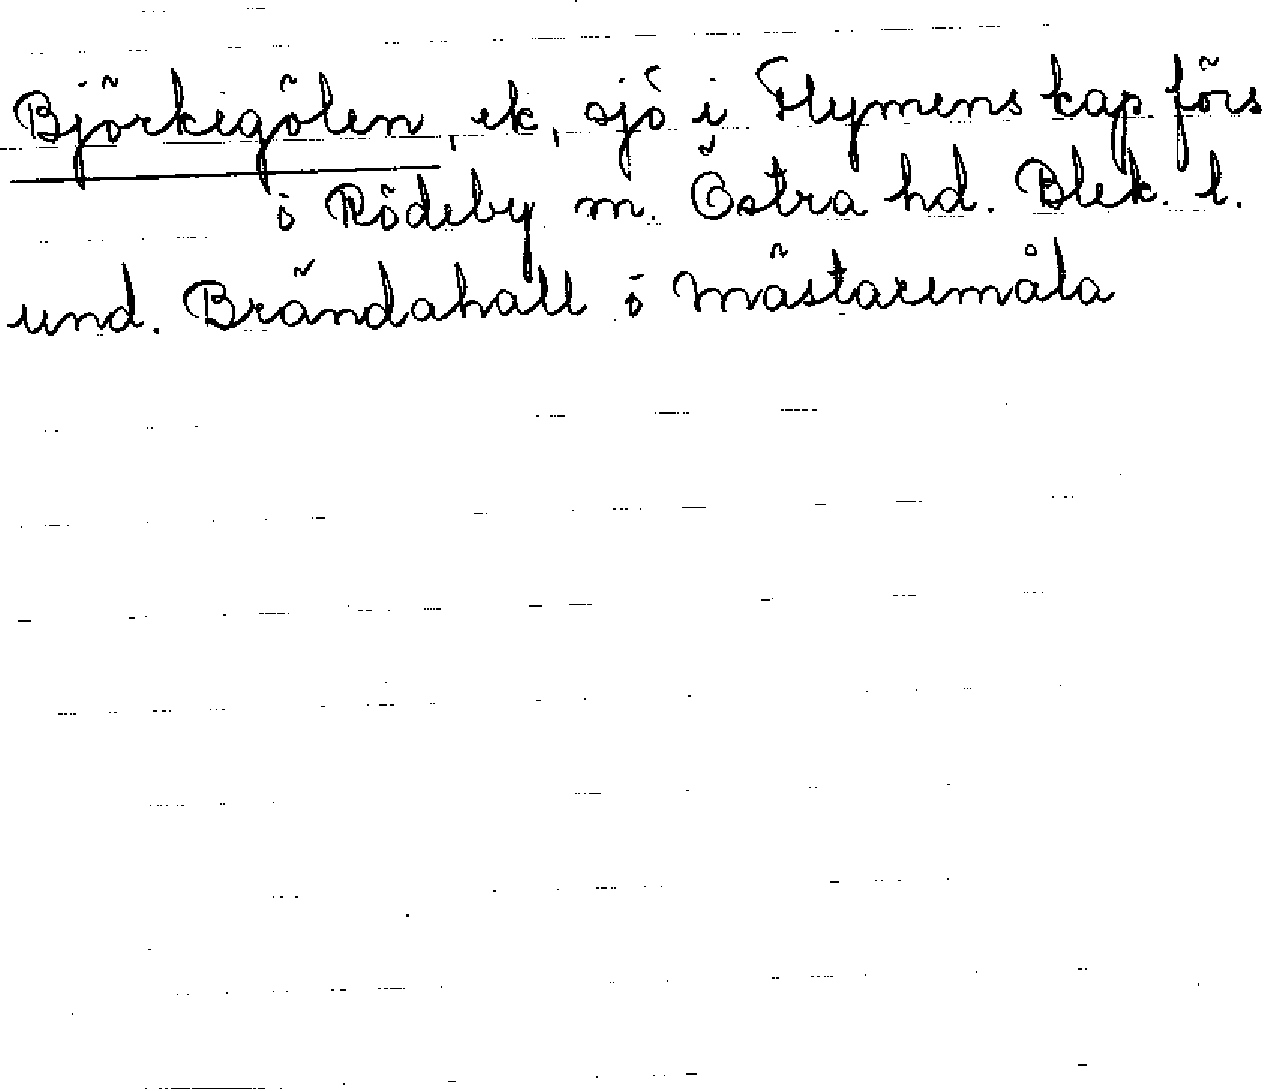 Björkegölen, ek, sjö i Flymens kap förs
i Rödeby m. Östra hd. Blek. l.
und. Brändahall i Mästaremåla